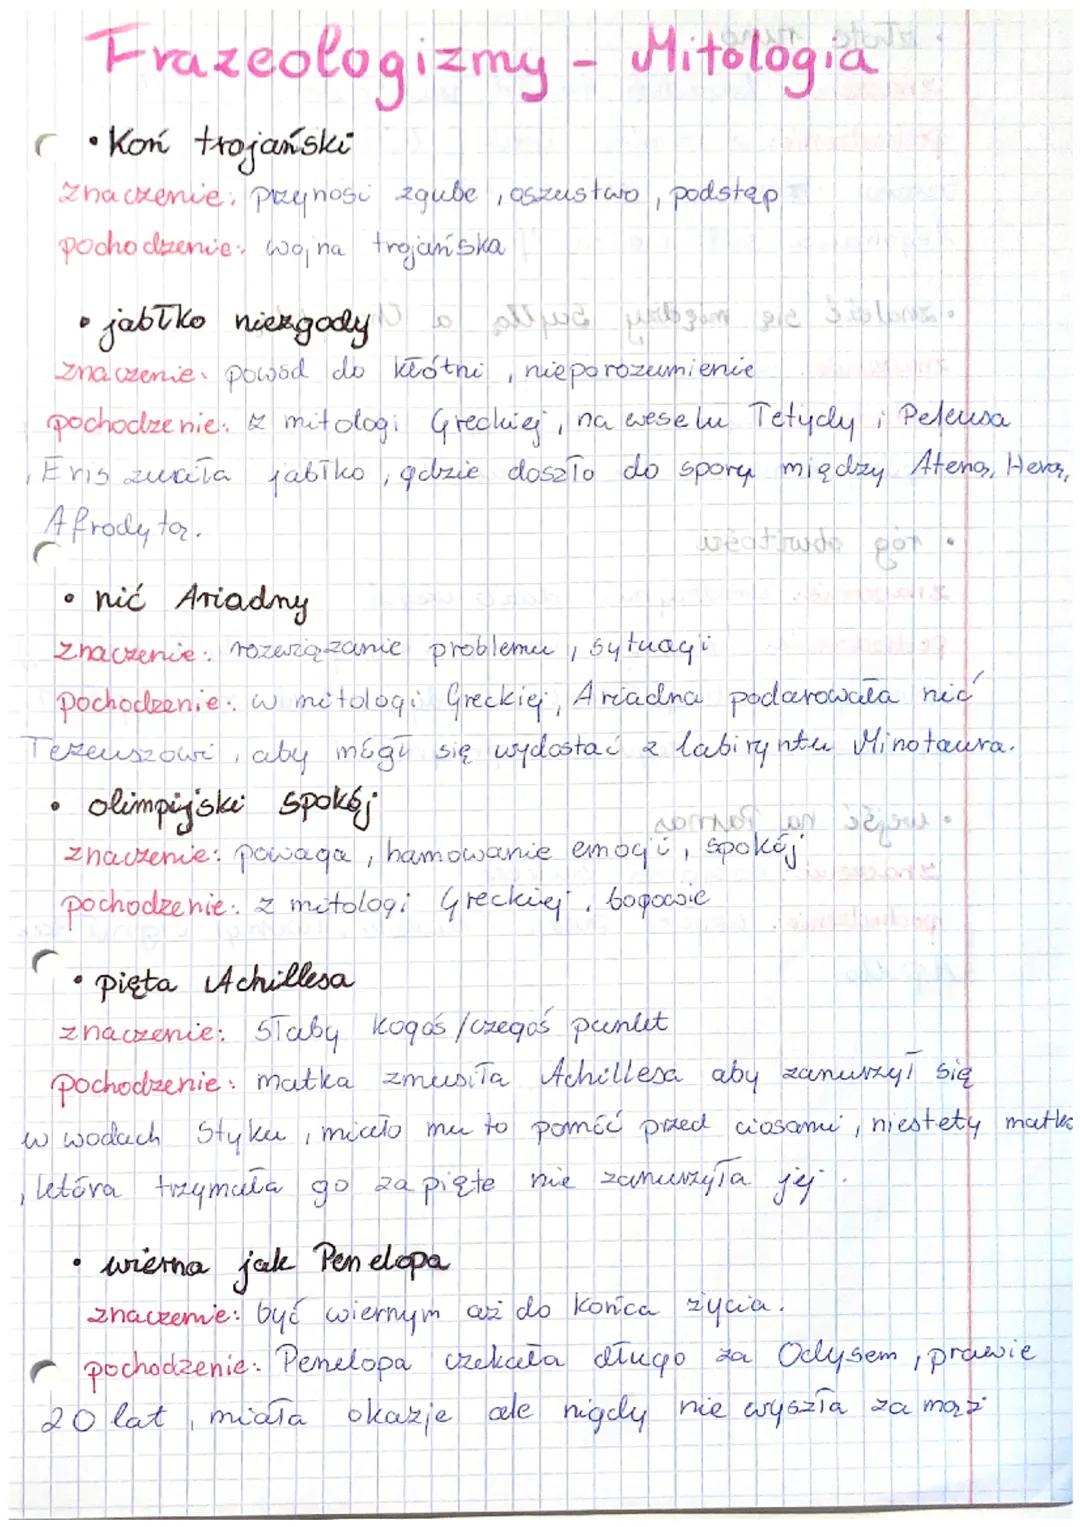 Frazeologizmy - Mitologia
• Koń trojański
znaczenie: przynosi zgube, oszustwo, podstęp
pochodzenie: wojna trojańska
• jabłko niezgody
znaczenie: powód do kłótni, nieporozumienie
pochodzenie: z mitologi Greckiej, na weselu Tetydy i Peleusa
, Eris                 jabłko, gdzie doszło do sporu między Ateną, Herą,
Afrodytą.
• nić Ariadny
znaczenie: rozwiązanie problemu, sytuacji
pochodzenie: w mitologi Greckiej, Ariadna podarowała nić
Tezeuszowi, aby mógł się wydostać z labiryntu Minotaura.
• olimpijski spokój
znaczenie: powaga, hamowanie emocji, spokój
pochodzenie: z mitologi Greckiej, bogowie
• pięta Achillesa
znaczenie: słaby kogoś/czegoś punkt
pochodzenie: matka zmusiła Achillesa aby zanurzył się
w wodach Styku, miało mu to pomóć przed ciosami, niestety matka
, która trzymała go za pięte nie zanurzyła jej.
• wierna jak Penelopa
znaczenie: być wiernym aż do końca życia.
pochodzenie: Penelopa czekała długo za Odysem, prawie
20 lat, miała okazje ale nigdy nie wyszła za mąż